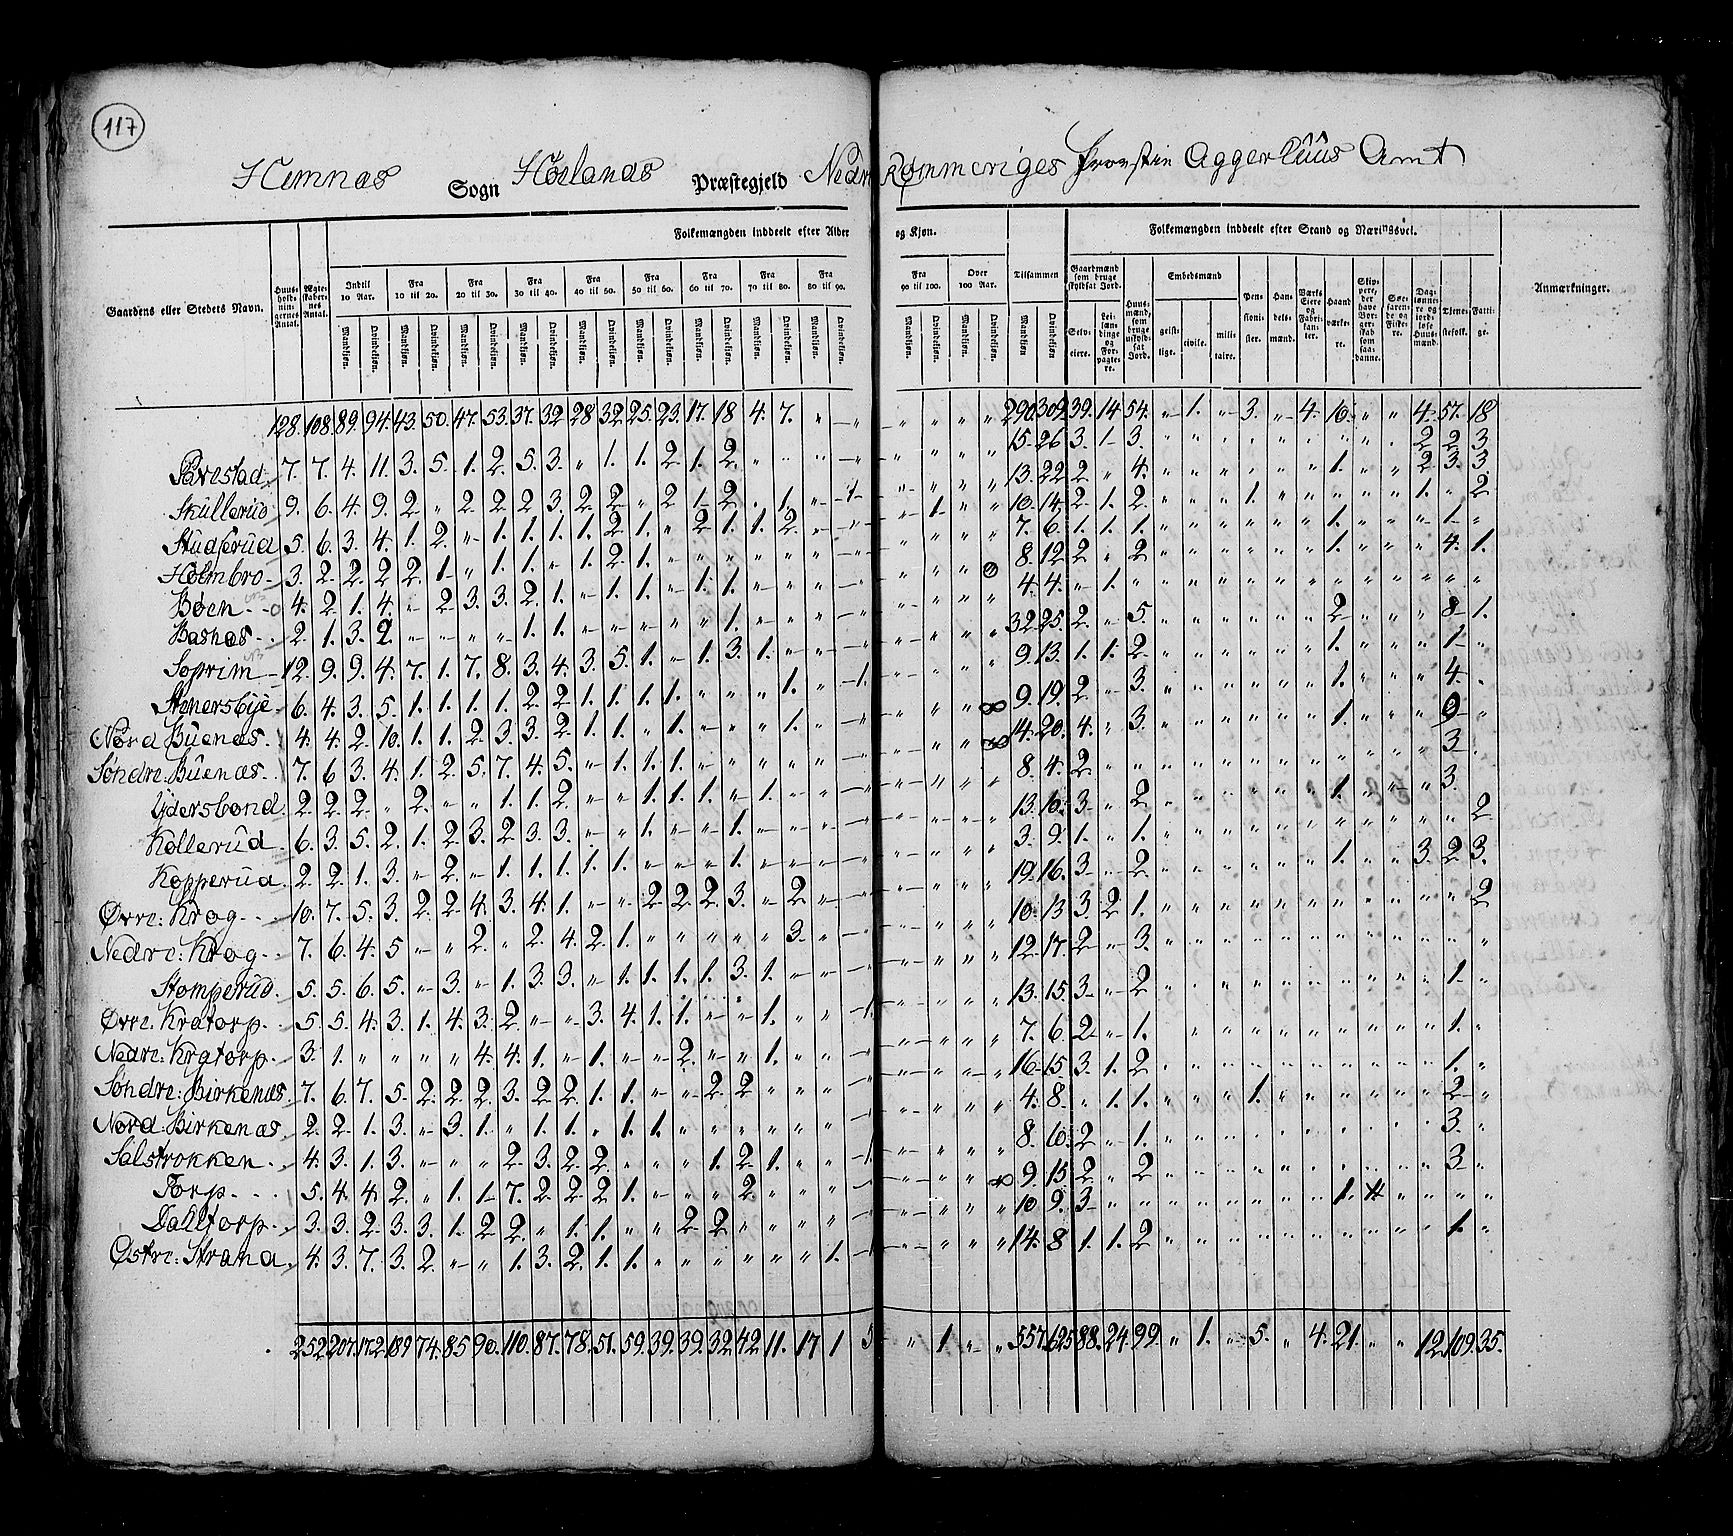 117
Hemnæs Sogn Hølands Præstegjeld Nedre Rommeriges Provstie Aggerhuus Amt
Folkemængden inddeelt efter Alder og Kjøn. Folkemængden inddeelt efter Stand og Næringsvei.
Gaardens eller Stedets Navn. Huusholdningernes Antal. Ægteskabernes Antal. Indtil 10 Aar. Fra 10 til 20. Fra 20 til 30. Fra 30 til 40. Fra 40 til 50. Fra 50 til 60. Fra 60 til 70. Fra 70 til 80. Fra 80 til 90. Fra 90 til 100. Over 100 Aar. Tilsammen Gaardmænd som bruge skyldsat Jord. Huusmænd som bruge uskyldsat Jord. Embedsmænd Pensionister. Handelsmænd. Værks Eiere og Fabrikanter. Haandværkere. Skippere, der have Borgerskab som saadanne. Søefarende og Fiskere. Dagleinnere og jordløse Huusmænd. Tjenestefolk. Fattige. Anmærkninger.
Mandkjøn. Qvindekjøn. Selveiere. Leilændinge og Forpagtere. geistlige. civile. militaire.
128. 108. 89. 94. 43. 50. 47. 53. 37. 32. 28 32. 25. 23. 17. 18 4. 7. 290. 309. 39. 14 54. 1. 3. 4. 16. 4. 57. 18
7. 7. 4. 11. 3. 5. 1. 2. 5. 3. „ 1. 1. 2. 1. 2. 15. 26. 3. 1. 3. 2 2 3
Skullerud 9. 6. 4. 9. 2 „ 2. 2. 2. 3. 2. 2. „ 2 1. 2. „ 1. 13. 22. 2 „ 4. 1. 2. 3. 3.
5. 6. 3. 4. 1. 2. „ 1. 1. 1. 1. 2. 1. „ 2 1. 1. 2. 1. 10. 14. 2. 1. 2. 1. 1. „ 2
Holmbro 3. 2. 2. 2. 2. 1. „ 1. 1. „ 1. 2. 1. 7. 6. 1. 1. 1. 1. 1.
Bøen 4. 2. 1. 4. „ 2. 3. 3. 2. 1. „ 1. 1. „ 1. 1. 8. 12. 2 „ 2 1. 4. 1.
Basnæs 2. 1. 3. 2. 1. 1. 1. 4. 4. „ 1.
Soprim 12. 9. 9. 4. 7. 1. 7. 8. 3. 4. 3. 5. 1. „ 1. 3. 1. 32. 25. 2. „ 5. 2. 8. 1.
Stenersbye 6. 4. 3. 5. 1. 1. 1. 1. 2. 2. 1. 1. 1. 1. 1. 9. 13. 1. 1. 2. 1. 1.
Nord Buenæs. 4. 4. 2. 10. 1. 1. 2. 3. 3. 2. 1. 1. „ 1. 1. 9. 19. 2 „ 3. 1. 4.
Søndre: Buenæs. 7. 6 3. 4. 1. 2. 5. 7. 4. 5. „ 1. 1. 1. 14. 20. 4. „ 3. 1. 9
Ydersbond. 2. 2. 2. „ 2. „ „ 1. 1. 2. „ „ 1. 1. 1. „ 1. 8. 4. 2. 3.
Kollerud. 6. 3. 5. 2. 1. 2. 3. 2. 3. 3. „ „ 1. „ „ 1. 13. 10. 3. „ 2 1. 3.
Kopperud. 2. 2. 1. 3. „ 2. „ 1. 1. 1. 1. 1. „ „ „ 1. 3. 9. 1. „ 1. 2
Øvre: Krog 10. 7. 5. 3. 2. 2. 4. 3. 4. 1. „ „ 2 2. 2. 3. „ 2. 19. 16. 3. „ 2. 1. 3. 2. 3.
Nedre: Krog 7. 6. 4. 5 „ „ 2. „ 2. 4. 2. 1. 3. 10. 13. 3. 2. 1. 2
Stomperud. 5. 5. 6. 5. „ 3. „ 1. 3. 3. „ 1. 1. 1. 1. 3. 1. 12. 17. 2. „ 3.
Øvre: Kratorp. 5. 5. 4. 3. 1. 4. 3. 2. „ „ 3. 4. 1. 1. „ „ 1. 13. 15. 3. „ 2. 1.
Nedre: Kratorp. 3. 1. „ „ „ „ 4. 4. 1. „ 1. „ „ 2. „ „ 1. 7. 6. 2. „ 1. 1.
Søndre: Birkenæs. 7. 6. 7. 5. 2. 2. 2. 3. 2. 2. 1. 1. „ „ 2. 2. 16. 15. 3. 1. 2. 1.
Nord: Birkenæs. 2. 2. 1. 3. „ 3. 1. „ 1. 1. „ 1. 1. 4. 8. „ 1. 1. 1. 2.
Solstrokken. 4. 3. 1. 3. „ „ „ 2. 3. 2. 2. „ „ „ 1. 2. 1. 8. 10. 2 „ 1. 3.
Torp. 5. 4. 4. 2. „ 1. 1. 7. 2. 2. 2. 1. „ „ „ 2. 9. 15. 2. „ 2 3.
Dahltorp. 3. 3. 2. 3. 3. 1. 2. 2. „ 1. 1. „ „ 2. 2. 10. 9. 3. 1.
Østre: Strand 4. 3. 7. 3. 2. „ „ 1. 3. 2. 1. 1. 1. 14. 8. 1. 1. 2 1.
252. 207. 172. 189 74. 85. 90. 110. 87. 78. 51. 59. 39. 39. 32. 42. 11. 17 1 5 „ 1 557. 625 88. 24. 99. „ 1. „ 5. „ 4. 21. „ „ 12. 109. 35.